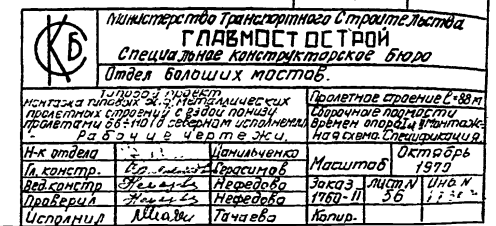 КБ
Министерство Транспортного Строительства
ГЛАВМОСТОСТРОЙ
Специальное конструкторское Бюро
Отдел больших мостов.
Типовой проект
монтажа типовых ж.д. металлических
пролетных строений с ездой понизу
пролетами 66-110 в северном исполнении
Рабочие чертежи.
Пролетное строение ℓ=88м
Сборочные подмости
времен. опора. Монтаж-
ная схема. Спецификация.
Н-к отдела Данильченко
Гл. констр. Герасимов
Вед.констр Нефедова
Проверил Нефедова
Исполнил Тачаева
Масштаб Октябрь 1970
Заказ 1760-II Лист N 56 Инв. N
Копир.